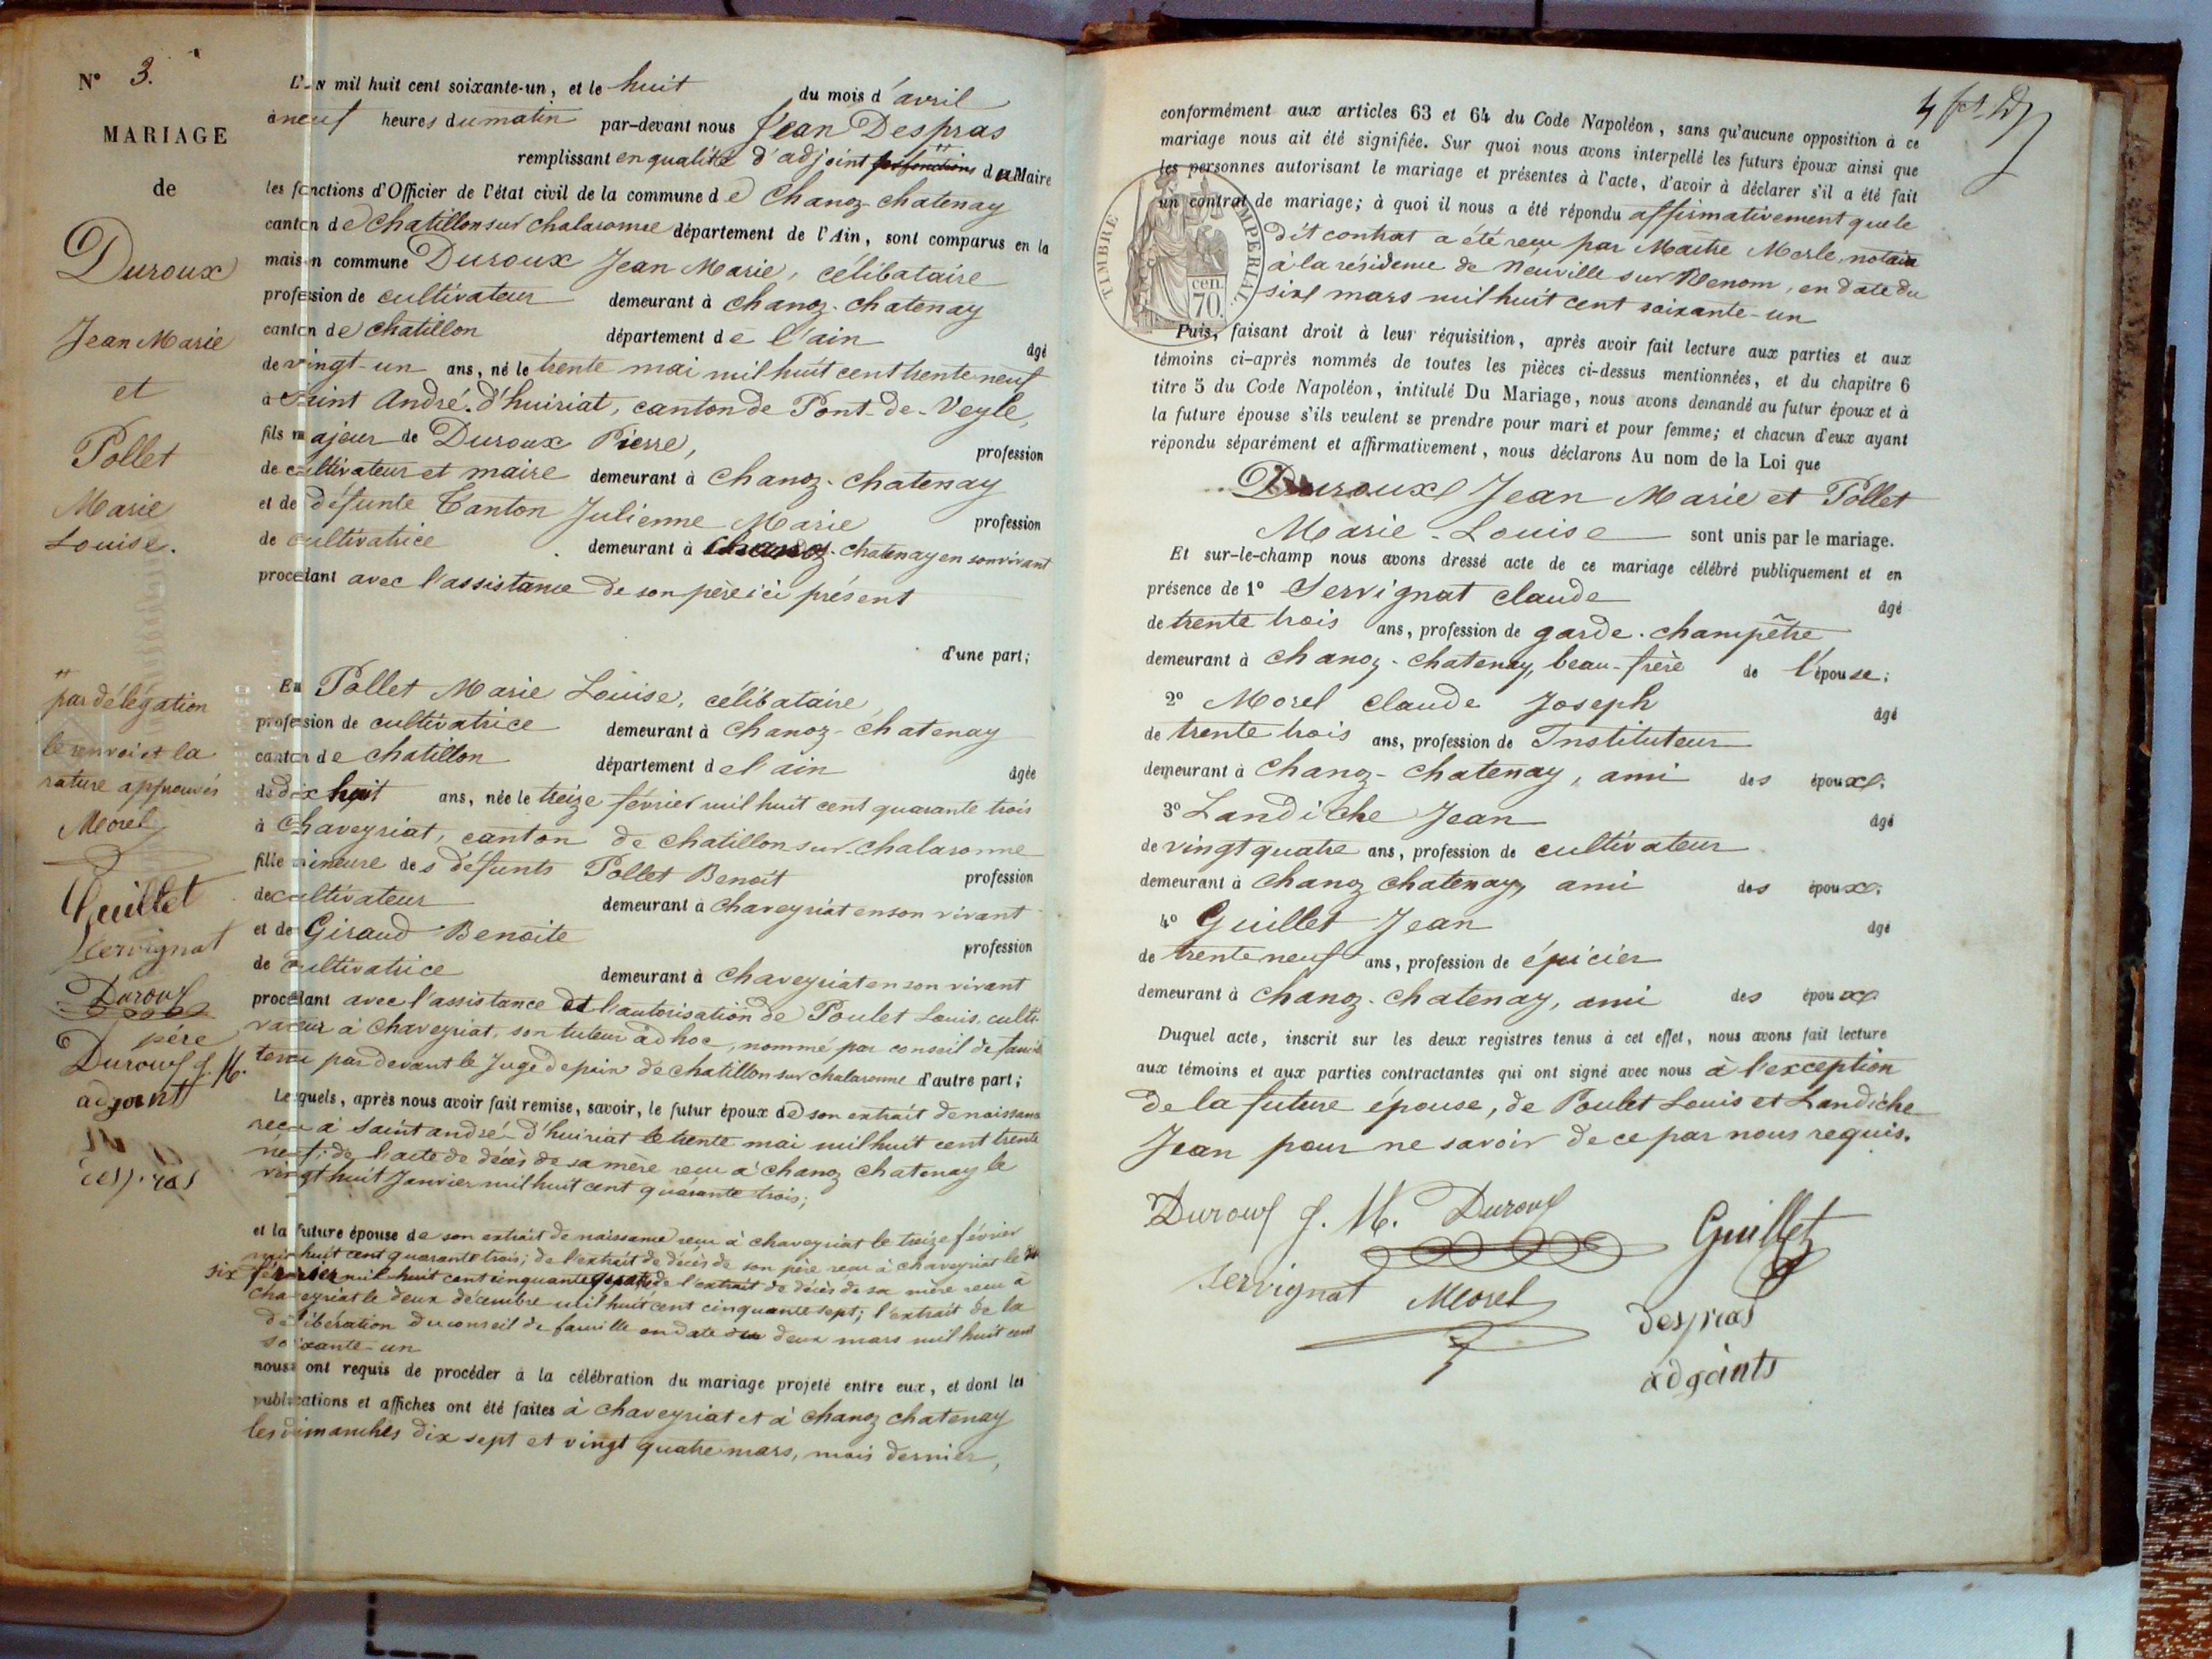 N° 3.
MARIAGE
de
Duroux
Jean Marie
et
Pollet
Marie
Louise.
par délégation
le renvoi et la
rature approuvés
Morel
Guillet
Servignat
Duroux
père
Duroux J. M.
adjoint
despras
L'an mil huit cent soixante-un, et le huit du mois d'avril
à neuf heures du matin par-devant nous Jean Despras
remplissant en qualité d'adjoint les fonctions de Maire
les fonctions d'Officier de l'état civil de la commune de Chanoz-chatenay
canton de chatillon sur chalaronne département de l'Ain, sont comparus en la
maison commune Duroux Jean Marie, célibataire
profession de cultivateur demeurant à chanoz-chatenay
canton de chatillon département de l'ain âgé
de vingt-un ans, né le trente mai mil huit cent trente neuf
à Saint André d'huiriat, canton de Pont-de-Veyle,
fils majeur de Duroux Pierre, profession
de cultivateur et maire demeurant à Chanoz-chatenay
et de défunte Tanton Julienne Marie profession
de cultivatrice demeurant à Chanoz-chatenay en son vivant
procédant avec l'assistance de son père ici présent
d'une part;
Et Pollet Marie Louise, célibataire,
profession de cultivatrice demeurant à Chanoz-chatenay
canton de chatillon département de l'ain âgée
de dix huit ans, née le treize février mil huit cent quarante trois
à Chaveyriat, canton de chatillon-sur-chalaronne
fille mineure des défunts Pollet Benoît profession
de cultivateur demeurant à chaveyriat en son vivant
et de Giraud Benoite profession
de cultivatrice demeurant à chaveyriat en son vivant
procédant avec l'assistance et l'autorisation de Poulet Louis, culti-
vateur à chaveyriat, son tuteur ad hoc, nommé par conseil de famille
tenu par devant le Juge de paix de chatillon sur chalaronne d'autre part;
Lesquels, après nous avoir fait remise, savoir, le futur époux de son extrait de naissance
reçu à Saint andré d'huiriat le trente mai mil huit cent trente
neuf; de l'acte de décès de sa mère reçu à chanoz chatenay le
vingt huit Janvier mil huit cent quarante trois;
et la future épouse de son extrait de naissance reçu à chaveyriat le treize février
mil huit cent quarante trois; de l'extrait de décès de son père reçu à chaveyriat le
six février mil huit cent cinquante de l'extrait de décès de sa mère reçu à
chaveyriat le deux décembre mil huit cent cinquante sept; l'extrait de la
délibération du conseil de famille en date du deux mars mil huit cent
soixante-un
nous ont requis de procéder à la célébration du mariage projeté entre eux, et dont les
publications et affiches ont été faites à chaveyriat et à chanoz chatenay
les dimanches dix sept et vingt quatre mars, mois dernier,
conformément aux articles 63 et 64 du Code Napoléon, sans qu'aucune opposition à ce
mariage nous ait été signifiée. Sur quoi nous avons interpellé les futurs époux ainsi que
les personnes autorisant le mariage et présentes à l'acte, d'avoir à déclarer s'il a été fait
un contrat de mariage; à quoi il nous a été répondu affirmativement que le
dit contrat a été reçu par Maître Morle, notaire
à la résidence de Neuville sur Renom, en date du
six mars mil huit cent soixante-un
TIMBRE IMPERIAL
cen.
70.
Puis, faisant droit à leur réquisition, après avoir fait lecture aux parties et aux
témoins ci-après nommés de toutes les pièces ci-dessus mentionnées, et du chapitre 6
titre 5 du Code Napoléon, intitulé Du Mariage, nous avons demandé au futur époux et à
la future épouse s'ils veulent se prendre pour mari et pour femme; et chacun d'eux ayant
répondu séparément et affirmativement, nous déclarons Au nom de la Loi que
Duroux Jean Marie et Pollet
Marie-Louise sont unis par le mariage.
Et sur-le-champ nous avons dressé acte de ce mariage célébré publiquement et en
présence de 1° Servignat claude âgé
de trente trois ans, profession de garde-champêtre
demeurant à chanoz-chatenay, beau-frère de l'épouse;
2° Morel claude Joseph âgé
de trente trois ans, profession de Instituteur
demeurant à chanoz-chatenay, ami des époux;
3° Landiche Jean âgé
de vingt quatre ans, profession de cultivateur
demeurant à chanoz chatenay, ami des époux;
4° Guillet Jean âgé
de trente neuf ans, profession de épicier
demeurant à chanoz-chatenay, ami des époux
Duquel acte, inscrit sur les deux registres tenus à cet effet, nous avons fait lecture
aux témoins et aux parties contractantes qui ont signé avec nous à l'exception
de la future épouse, de Poulet Louis et Landiche
Jean pour ne savoir de ce par nous requis.
Duroux J. M. Duroux Guillet
servignat Morel despras
adgoints